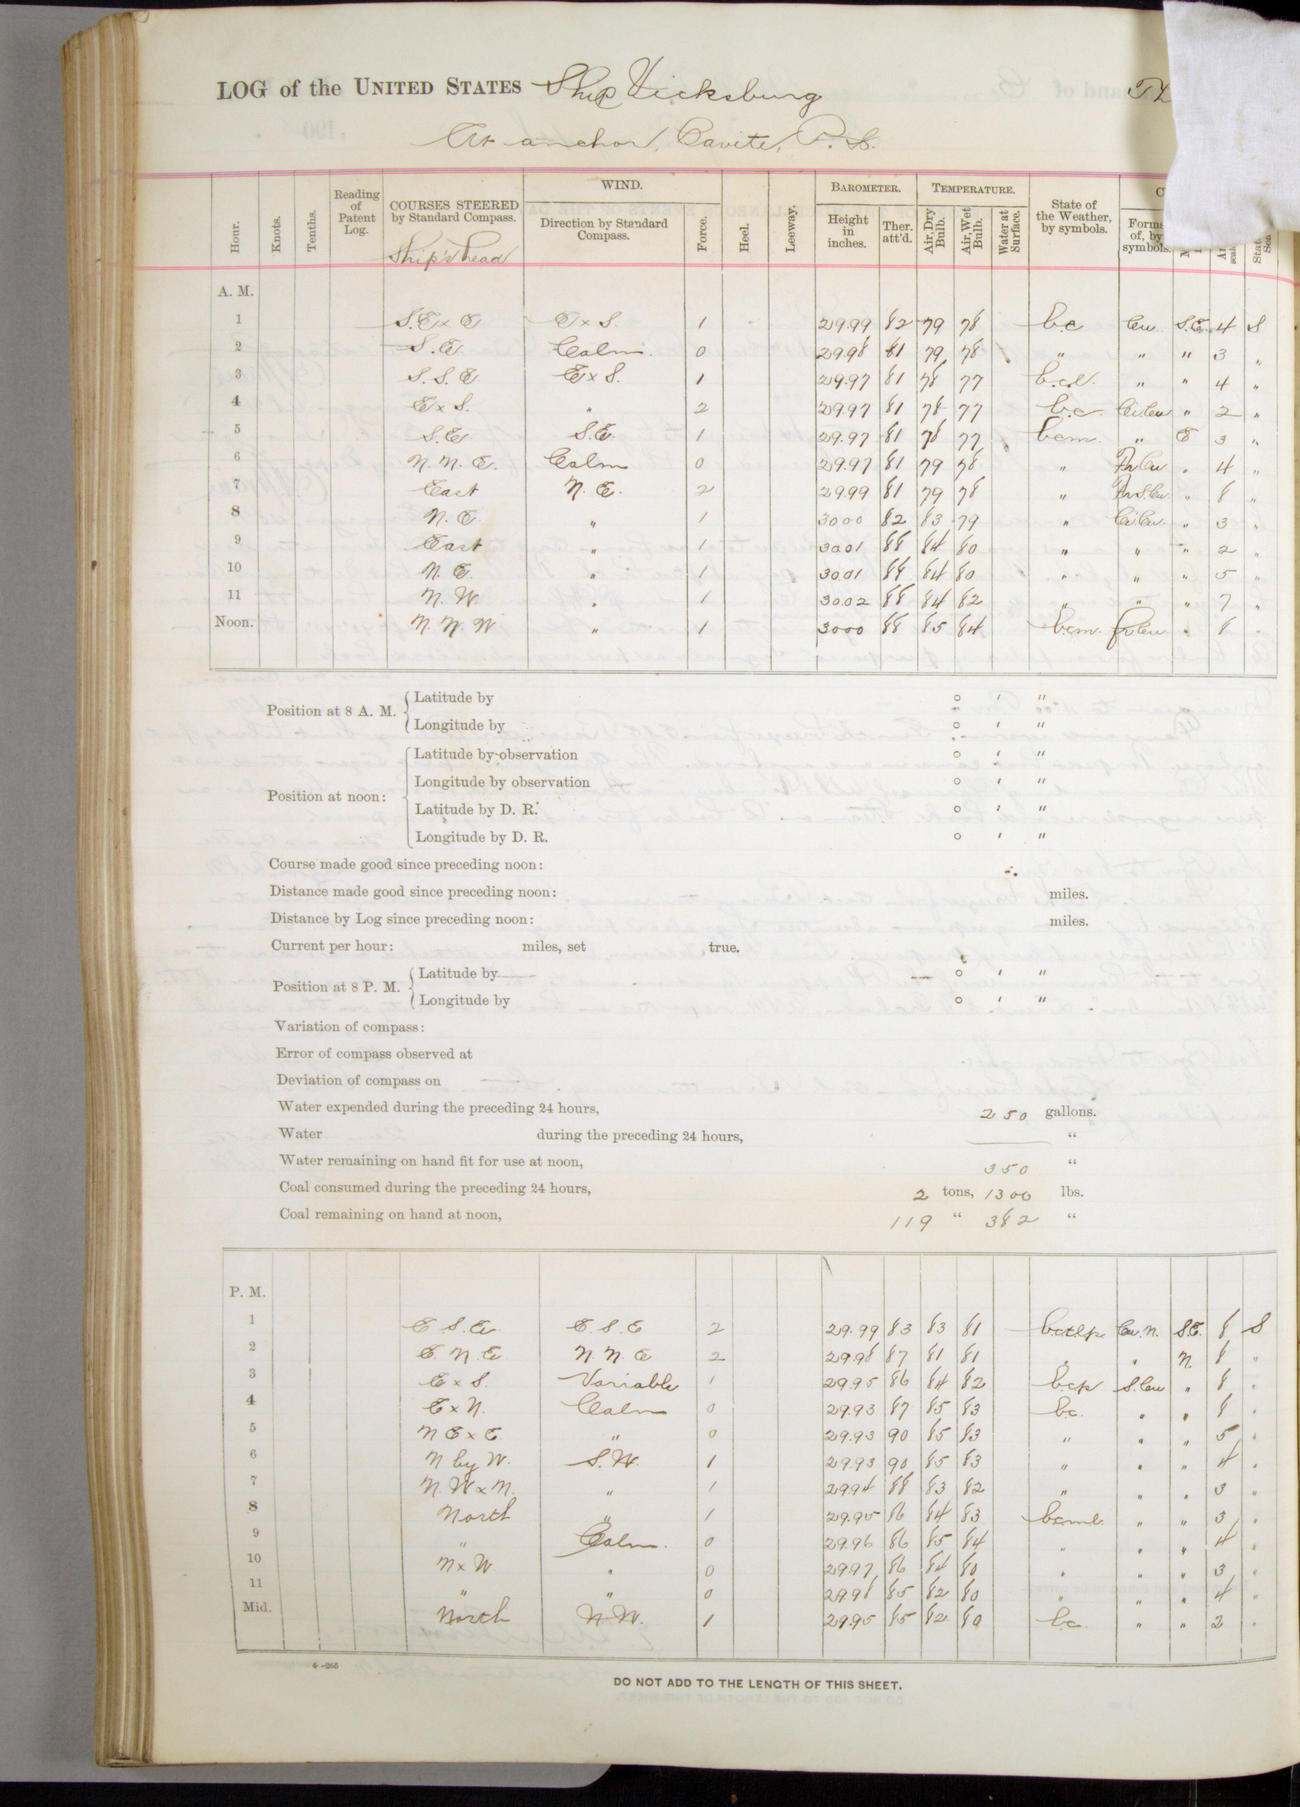 LOG of the UNITED STATES Ship Vicksburg
At anchor, Cavite, P. I.
Hour. Knots. Tenths. Reading of Patent Log. COURSES STEERED by Standard Compass. Ship's head WIND. Direction by Standard Compass. Force. Heel. Leeway. BAROMETER. Height in inches. Ther. att'd. TEMPERATURE. Air, Dry Bulb. Air, Wet Bulb. Water at Surface. State of the Weather, by symbols. Forms of, by symbols.
A. M.
1 S.E x E E x S. 1 29.99 82 79 78 b.c Cu. S.E. 4 S
2 S.E. Calm. 0 29.98 81 79 78 " " " 3 "
3 S.S.E E x S. 1 29.97 81 78 77 b.c.d. " " 4 "
4 E x S. " 2 29.97 81 78 77 b.c. Ci.Cu " 2 "
5 S.E S.E. 1 29.97 81 78 77 bcm. " E 3 "
6 N.N.E. Calm 0 29.97 81 79 78 " Cu. " 4 "
7 East N.E. 2 29.99 81 79 78 " S.Cu. " 8 "
8 N.E. " 1 3000 82 83 79 " Ci.Cu. " 3 "
9 East " 1 3001 88 84 80 " " " 2 "
10 N.E. " 1 30.01 88 84 80 " " " 5 "
11 N.W. " 1 3002 88 84 82 " " " 7 "
Noon. N.N.W " 1 3000 88 85 84 bcm. Cu " 8 "
Position at 8 A. M. Latitude by ° ' "
Longitude by ° ' "
Position at noon: Latitude by observation ° ' "
Longitude by observation ° ' "
Latitude by D. R. ° ' "
Longitude by D. R. ° ' "
Course made good since preceding noon:
Distance made good since preceding noon: miles.
Distance by Log since preceding noon: miles.
Current per hour: miles, set true.
Position at 8 P. M. Latitude by ° ' "
Longitude by ° ' "
Variation of compass:
Error of compass observed at
Deviation of compass on
Water expended during the preceding 24 hours, 250 gallons.
Water during the preceding 24 hours, "
Water remaining on hand fit for use at noon, 350 "
Coal consumed during the preceding 24 hours, 2 tons, 1300 lbs.
Coal remaining on hand at noon, 119 " 382 "
P. M.
1 E S.E. E.S.E 2 29.99 83 83 81 Cu.N. S.E. 8 S
2 E.N.E N N E 2 29.98 87 81 81 " " N. 8 "
3 E x S. Variable 1 29.95 86 84 82 bcp S.Cu " 8 "
4 E x N. Calm 0 29.93 87 85 83 bc. " " 8 "
5 N E x E. " 0 29.93 90 85 83 " " " 5 "
6 N by W. S.W. 1 29.93 90 85 83 " " " 4 "
7 N W x N. " 1 29.94 88 83 82 " " " 3 "
8 North " 1 29.95 86 84 83 bcml. " " 3 "
9 " Calm. 0 29.96 86 85 84 " " " 4 "
10 N x W " 0 29.97 86 84 80 " " " 3 "
11 " " 0 29.98 85 82 80 " " " 4 "
Mid. North N.W. 1 29.95 85 82 80 b.c. " " 2 "
6-265
DO NOT ADD TO THE LENGTH OF THIS SHEET.